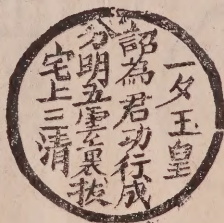 一夕玉皇
詔為君功行成
分明五雲裏拔
宅上三清